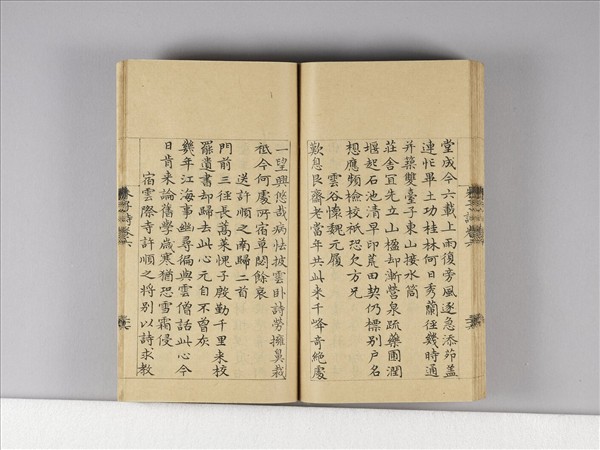 堂成今六載上雨復旁風逐急添茆蓋
連忙畢土功桂林何日秀蘭徑幾時通
并築雙臺子東山接水筒
莊舍宜先立山楹却漸營泉疏藥圃潤
堰起石池清早印荒田契仍標別户名
想應頻檢校祗恐欠方兄
雲谷懷魏元履
歎息艮齋老當年共此来千峰奇絕處
一望興悠哉病怯披雲卧詩勞擁鼻裁
祗今何處所宿草閟餘哀
送許順之南歸二首
門前三徑長蒿萊愧子殷勤千里来校
罷遺書却歸去此心元自不曾灰
幾年江海事幽尋徧與雲僧話此心今
日肯来論舊學歲寒猶恐雪霜侵
宿雲際寺許順之将別以詩求教